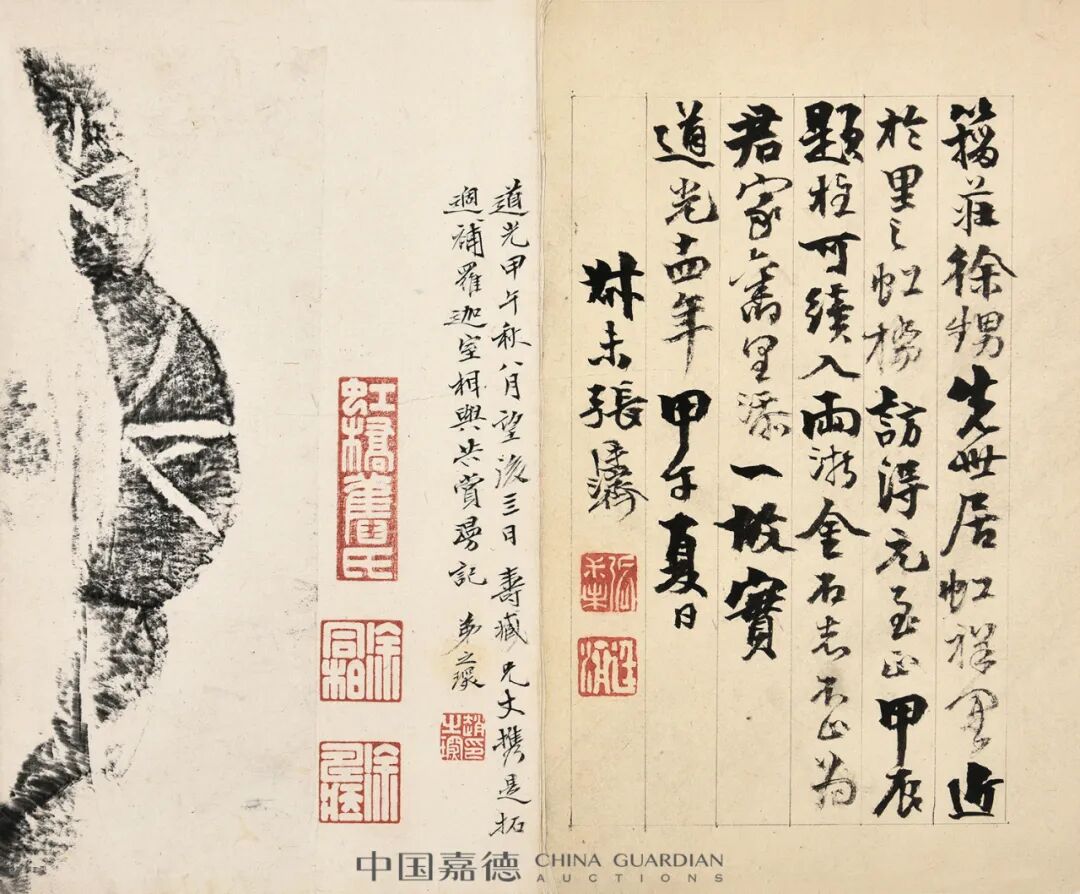 籀莊徐甥先世居虹祥里近
於里之虹橋訪得元至正甲辰
題柱可續入兩浙金石志不止為
君家舊里添一故實
道光十四年甲午夏日
叔未張廷濟
張叔未
廷濟
道光甲午秋八月望後三日壽臧兄丈攜是拓
過補羅迦室相與共賞漫記 弟之琛
趙印之琛
虹橋舊氏
徐同柏
中国嘉德 CHINA GUARDIAN AUCTIONS